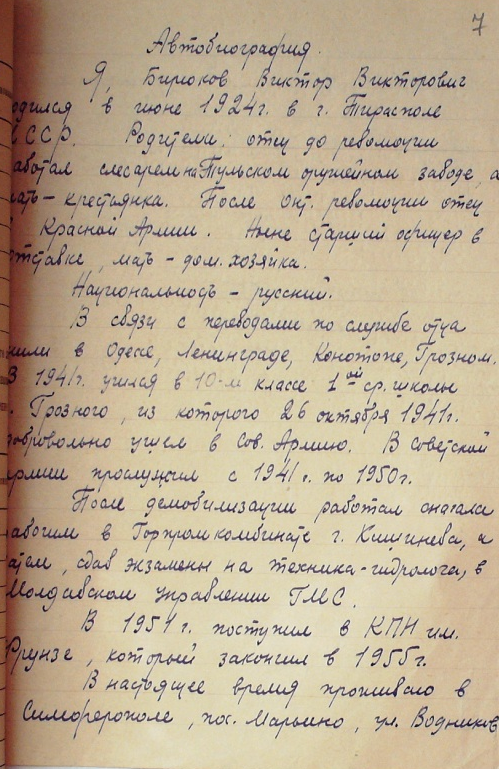 7
Автобиография.
Я, Бирюков Виктор Викторович
одился в июне 1924г. в г. Тирасполе
ССР. Родители: отец до революции
аботал слесарем на Тульском оружейном заводе, а
ать – крестьянка. После Окт. революции отец
Красной Армии. Ныне старший офицер в
отставке, мать – дом. хозяйка.
Национальность – русский.
В связи с переводами по службе отца
жили в Одессе, Ленинграде, Конотопе, Грозном.
В 1941г. учился в 10-м классе 1ой ср. школы
. Грозного, из которого 26 октября 1941г.
добровольно ушел в Сов. Армию. В советской
армии прослужил с 1941г. по 1950г.
После демобилизации работал сначала
рабочим в Горпромкомбинате г. Кишинева, а
атем, сдав экзамены на техника-гидролога, в
Молдавском управлении ГМС.
В 1951г. поступил в КПИ им.
Фрунзе, который закончил в 1955г.
В настоящее время проживаю в
Симферополе, пос. Марьино, ул. Водников